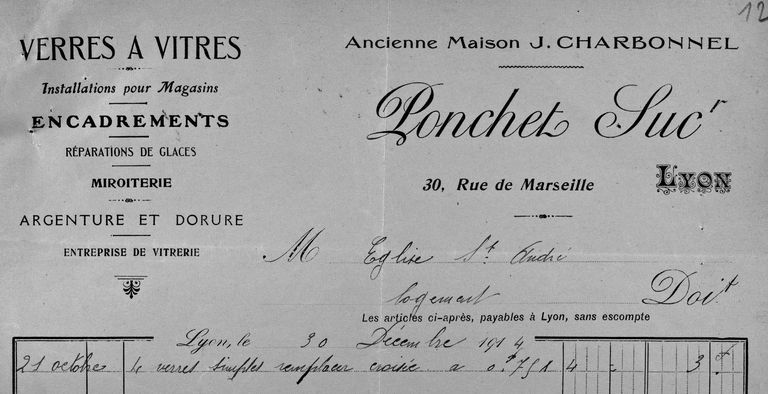 12
VERRES A VITRES
Installations pour Magasins
ENCADREMENTS
RÉPARATIONS DE GLACES
MIROITERIE
ARGENTURE ET DORURE
ENTREPRISE DE VITRERIE
Ancienne Maison J. CHARBONNEL
Ponchet Sucr
30, Rue de Marseille LYON
M Eglise St André
logement Doit
Les articles ci-après, payables à Lyon, sans escompte
Lyon, le 30 Décembre 1914
21 octobre 4 verres simples remplacer croisée a 0f 75 4 - 3 f